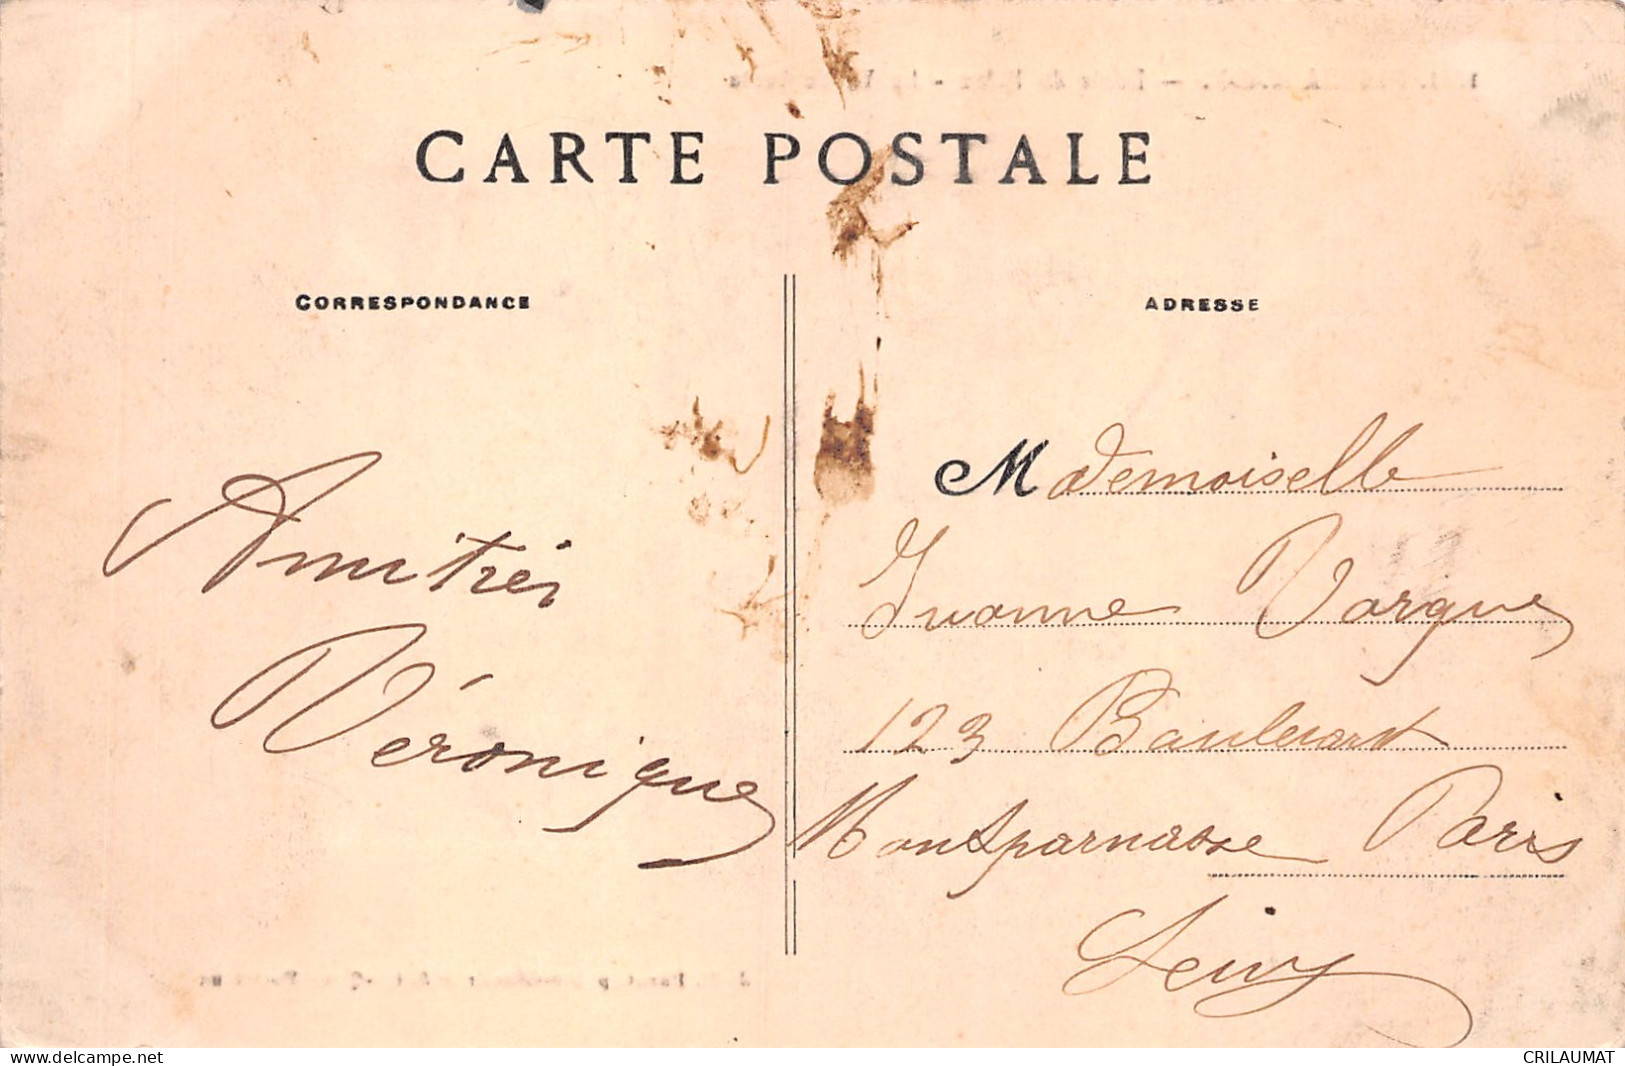 CARTE POSTALE
CORRESPONDANCE
ADRESSE
Amitiés
Véronique
Mademoiselle
Yvonne Vorgue
123 Boulevard
Montparnasse Paris
www.delcampe.net
CRILAUMAT